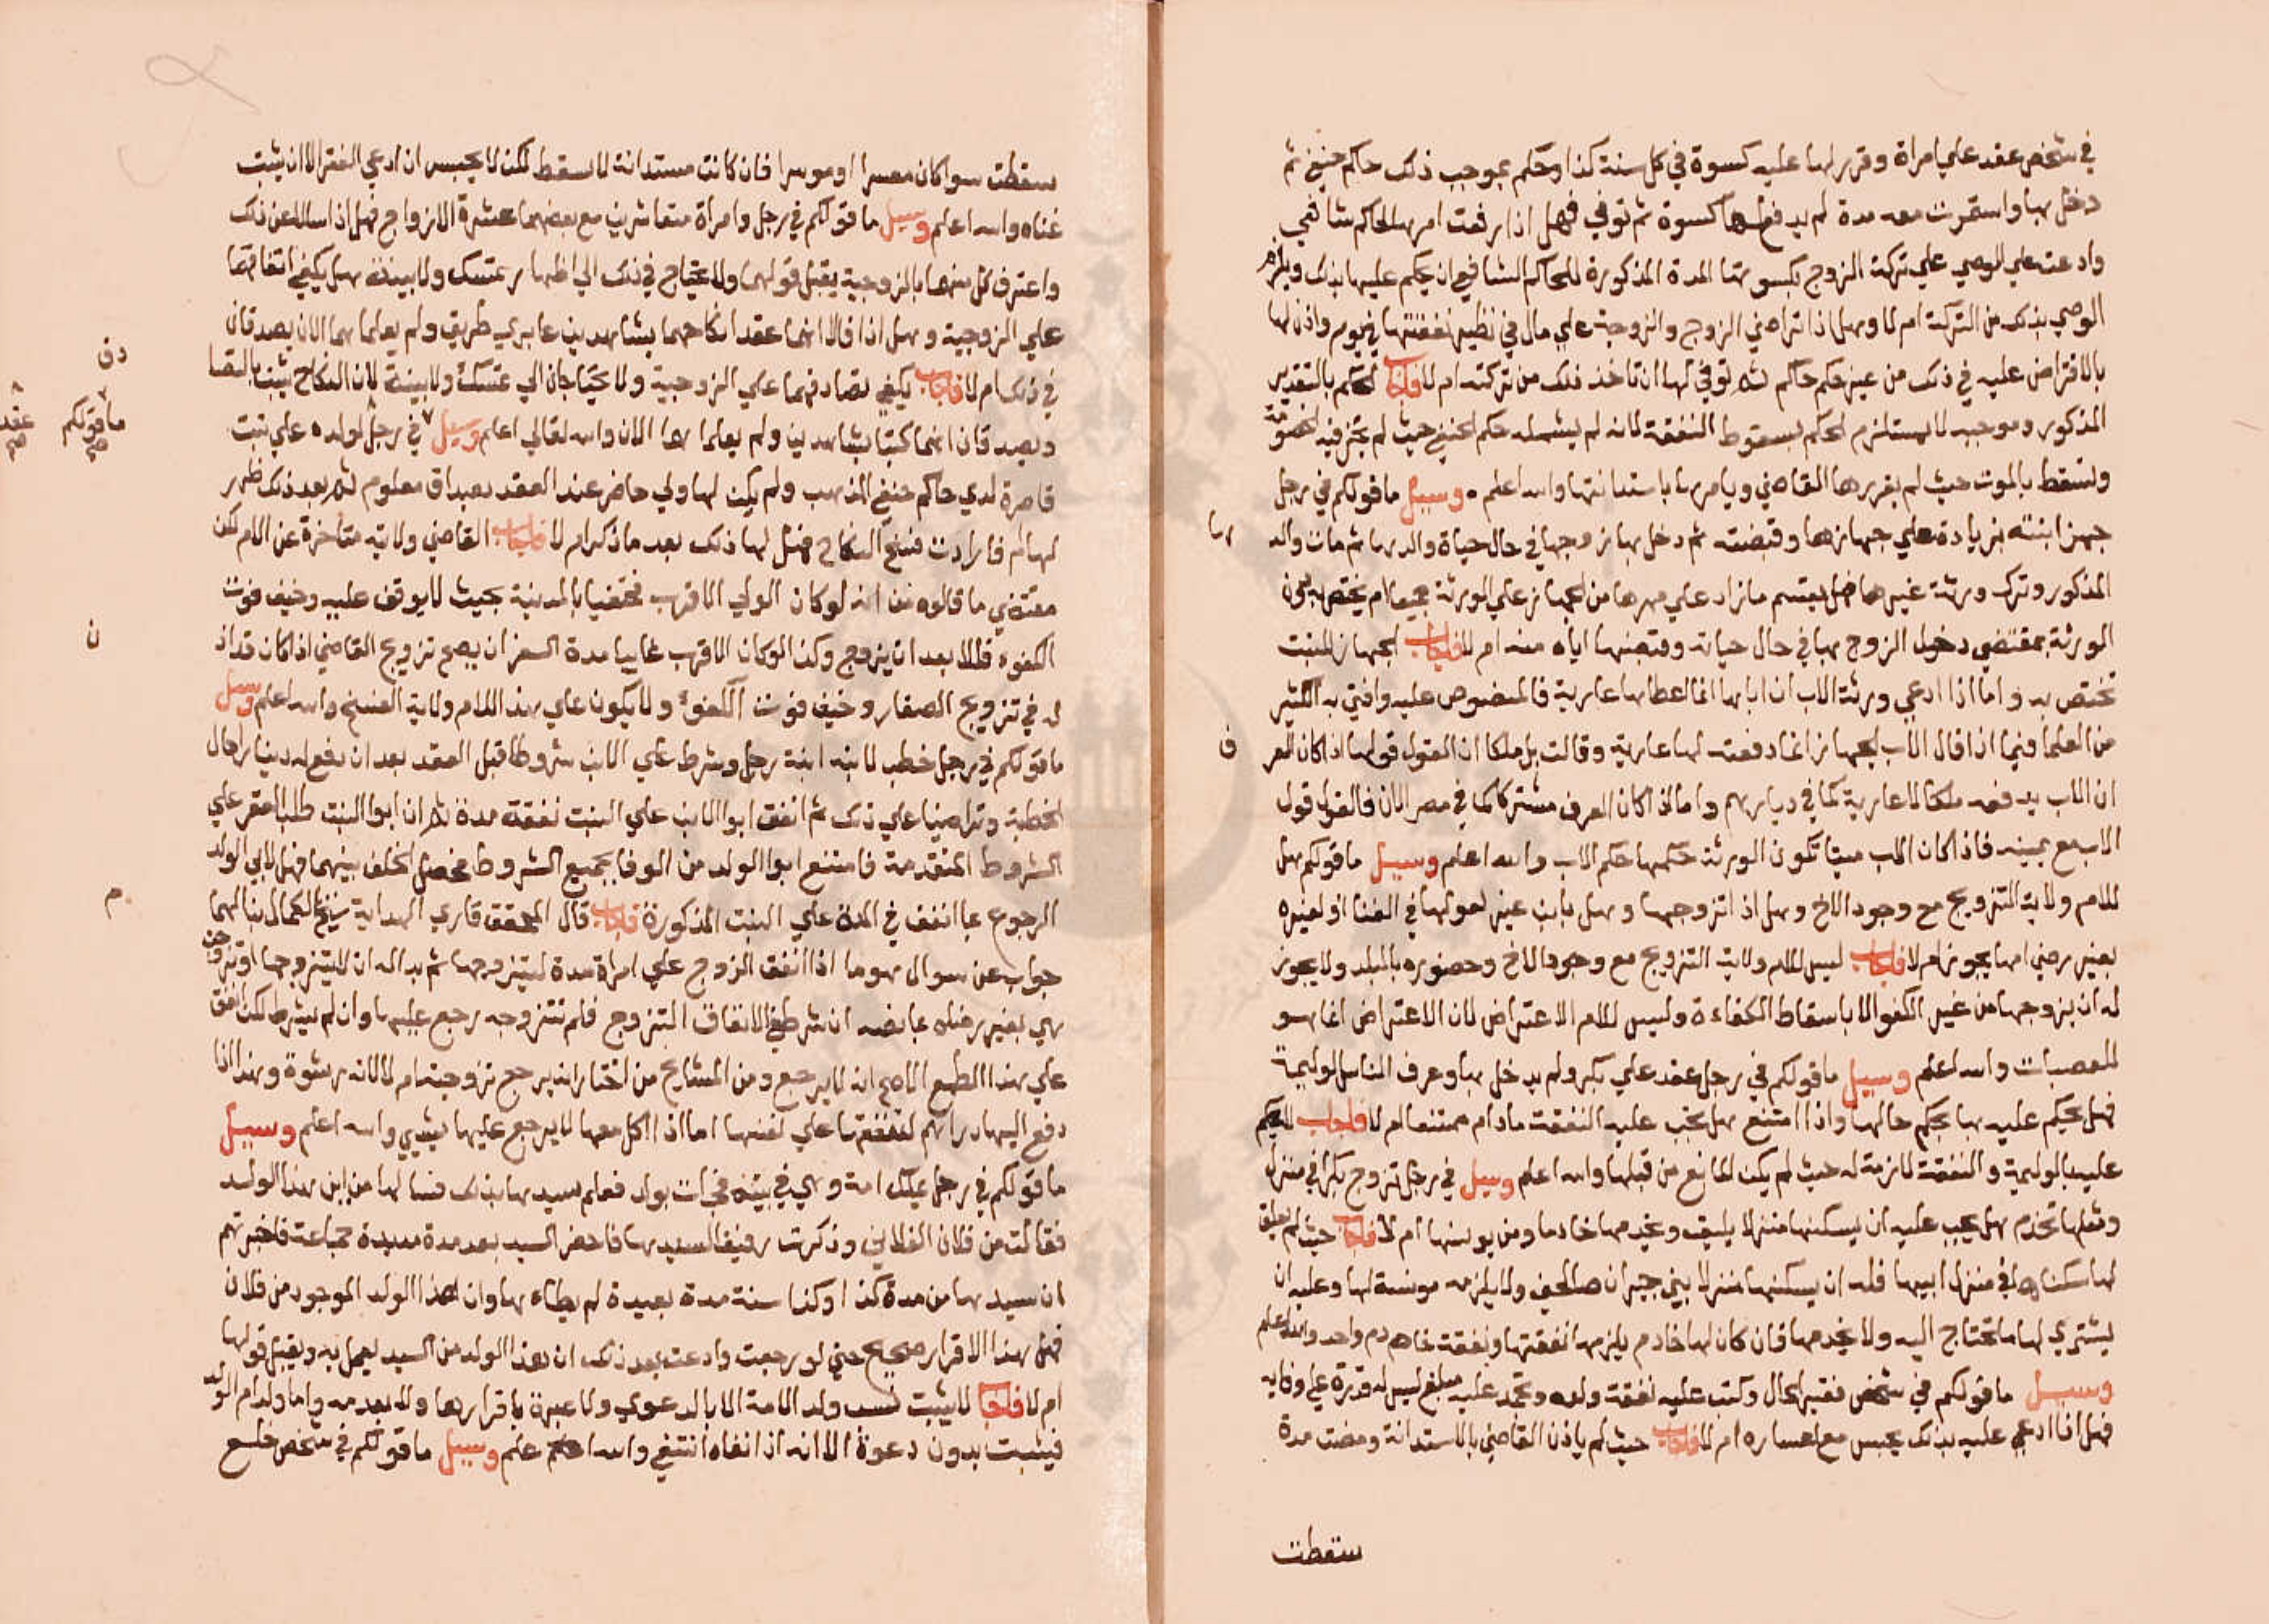 في شخص عقد علي امراة وقرر لها عليه كسوة في كل سنة كذا وحكم بموجب ذلك حاكم حنفي ثم
دخل بها واستمرت معه مدة لم يدفع لها كسوة ثم توفي فهل اذا رفعت امرها لحاكم شافعي
وادعت علي الوصي علي تركة الزوج بكسوتها المدة المذكورة للحاكم الشافعي ان يحكم عليها بذلك ويلزم
الوصي بذلك من التركة ام لا وهل اذا تراضي الزوج والزوجة علي مال في نظير نفقتها في يوم واذن لها
بالاقتراض عليه في ذلك من غير حكم حاكم ثم توفي لها ان تاخذ ذلك من تركته ام لا فاجاب الحكم بالتقدير
المذكور وموجبه لا يستلزم الحكم بسقوط النفقة لانه لم يشمله حكم الحنفي حيث لم يجز فيه لخصومة
وتسقط بالموت حيث لم يقررها القاضي ويامرها باستدانتها والله اعلم وسيل ما قولكم في رجل
جهز ابنته بزيادة علي جهازها وقبضته ثم دخل بها زوجها في حال حياة والدها ثم مات والد
ها
المذكور وترك ورثة غيرها فهل يقسم ما زاد علي مهرها من الجهاز علي الورثة جميعا ام يختص به دون
الورثة بمقتضي دخول الزوج بها في حال حياته وقبضها اياه منه ام لا فاجاب الجهاز للبنت
تختص به واما اذا ادعي ورثة الاب ان اباها انما اعطاها عارية فالمنصوص عليه وافتي به الكثير
من العلما فيما اذا قال الاب لجهاز انما دفعته لها عارية وقالت بل ملكا ان القول قولها اذا كان العر
ف
ان الاب يدفعه ملكا لا عارية كما في ديارهم واما اذا كان العرف مشتركا كما في مصر الان فالقول قول
الاب مع يمينه فاذا كان الاب ميتا تكون الورثة حكمها حكم الاب والله اعلم وسيل ما قولكم هل
للام ولاية التزويج مع وجود الاخ وهل اذا تزوجها وهل بابن عير لعولها في الغنا او لغيره
بغير رضي امها يجوز ام لا فاجاب ليس للام ولاية التزويج مع وجود الاخ وحضوره بالبلد ولا يجوز
له ان يزوجها من غير الكفو الا باسقاط الكفاءة وليس للام الاعتراض لان الاعتراض انما هو
للعصبات والله اعلم وسيل ما قولكم في رجل عقد علي بكر ولم يدخل بها وعرف الناس الوليمة
فهل يحكم عليه بها بحكم حالها واذا امتنع هل تجب عليه النفقة مادام ممتنعا ام لا فاجاب للحكم
عليه بالوليمة والنفقة لازمة له حيث لم يكن المانع من قبلها والله اعلم وسيل في رجل تزوج بكرا في منزل
ومثلها تخدم هل يجب عليه ان يسكنها منزلا يليق ويخدمها خادما ومن يونسها ام لا فاجاب حيث لم يعلق
لها سكناها في منزل ابيها فله ان يسكنها منزلا بيني جيران صالحين ولا يلزمه مونسة لها وعليه ان
يشتري لها ما تحتاج اليه ولا يخدمها فان كان لها خادم يلزمه نفقتها ونفقة خادم واحد والله اعلم
وسيل ما قولكم في شخص فقير الحال وكتب عليه نفقة ولده وتجمد عليه مبلغ ليس له قدرة علي وفايه
فهل اذا ادعي عليه بذلك يحبس مع اعساره ام لا فاجاب حيث لم ياذن القاضي بالاستدانة ومضت مدة
سقطت
سقطت سوا كان معسرا او موسرا فان كانت مستدانة لا تسقط لكن لا يحبس ان ادعي الفقر الا ان يثبت
غناه والله اعلم وسيل ما قولكم في رجل وامراة متعاشرين مع بعضهما عشرة الازواج فهل اذا سالا عن ذلك
واعترف كل منهما بالزوجية يقبل قولهما ولا يحتاج في ذلك الي اظهار تمسك ولا بينة هل يكفي اتفاقهما
علي الزوجية وهل اذا قالا انهما عقدا نكاحهما بشاهدين عابري طريق ولم يعلما هما الان يصدقان
في ذلك ام لا فاجاب يكفي تصادقهما علي الزوجية ولا يحتاجان الي تمسك ولا بينة لان النكاح يثبت بالتصا
دق
ويصدقان انهما كتبا بشاهدين ولم يعلما هما الان والله تعالي اعلم وسيل في رجل لولده علي بنت
ما قولكم صح
عقد صح
قاصرة لدي حاكم حنفي المذهب ولم يكن لها ولي حاضر عند العقد بصداق معلوم ثم بعد ذلك ظهر
لها ام فارادت فسخ النكاح فهل لها ذلك بعد ما ذكر ام لا فاجاب القاضي ولايته متاخرة عن الام لكن
مقتضي ما قالوه من انه لو كان الولي الاقرب مختفيا بالمدينة بحيث لا يوقف عليه وخيف فوت
الكفوء فللابعد ان يزوج وكذا لو كان الاقرب غايبا مدة السفر ان يصح تزويج القاضي اذا كان قد اذ
ن
له في تزويج الصغار وخيف فوت الكفوء ولا يكون علي هذا للام ولاية الفسخ والله اعلم وسيل
ما قولكم في رجل خطب لابنه ابنة رجل وشرط علي الابن شروطا قبل العقد بعد ان دفع له دينارا حال
الخطبة وتراضيا علي ذلك ثم انفق ابو الابن علي البنت نفقة مدة ثم ان ابو البنت طلب العقر علي
الشروط المتقدمة فامتنع ابو الولد من الوفا بجميع الشروط فحصل الخلف بينهما فهل لابي الولد
الرجوع بما انفق في المدة علي البنت المذكورة فاجاب قال المحقق قاري الهداية شيخ الكمال بن الهما
م
جواب عن سوال هو ما اذا انفق الزوج علي امراة مدة ليتزوجها ثم بدا له ان لا يتزوجها او تزوجت
هي بغير رضاه بما نصه ان شرط في الانفاق التزوج فلم تتزوجه رجع عليها وان لم يشترط لكن انفق
علي هذا الطمع الاصح انه لا يرجع ومن المشايخ من اختار انه يرجع تزوجته ام لا لانه رشوة وهذا اذا
دفع اليها دراهم لتنفقها علي نفسها اما اذا اكل معها لا يرجع عليها بشيي والله اعلم وسيل
ما قولكم في رجل يملك امة وهي في بيته فجات بولد فعلم سيدها بذلك فسالها من اين هذا الولد
فقالت من فلان الفلاني وذكرت رفيق السيدها فاحضر السيد بعد مدة مديدة جماعة فاخبرتهم
ان سيدها من مدة كذا وكذا سنة مدة بعيدة لم يطاها وان هذا الولد الموجود من فلان
فهل هذا الاقرار صحيح حتي لو رجعت وادعت بعد ذلك ان هذا الولد من السيد يعمل به ويقبل قولها
ام لا فاجاب لا يثبت نسب ولد الامة الا بالدعوي ولا عبرة باقرارها ولا بعدمه واما ولد ام الولد
فيثبت بدون دعوة الا انه اذا نفاه انتفي والله اعلم وسيل ما قولكم في شخص خلع